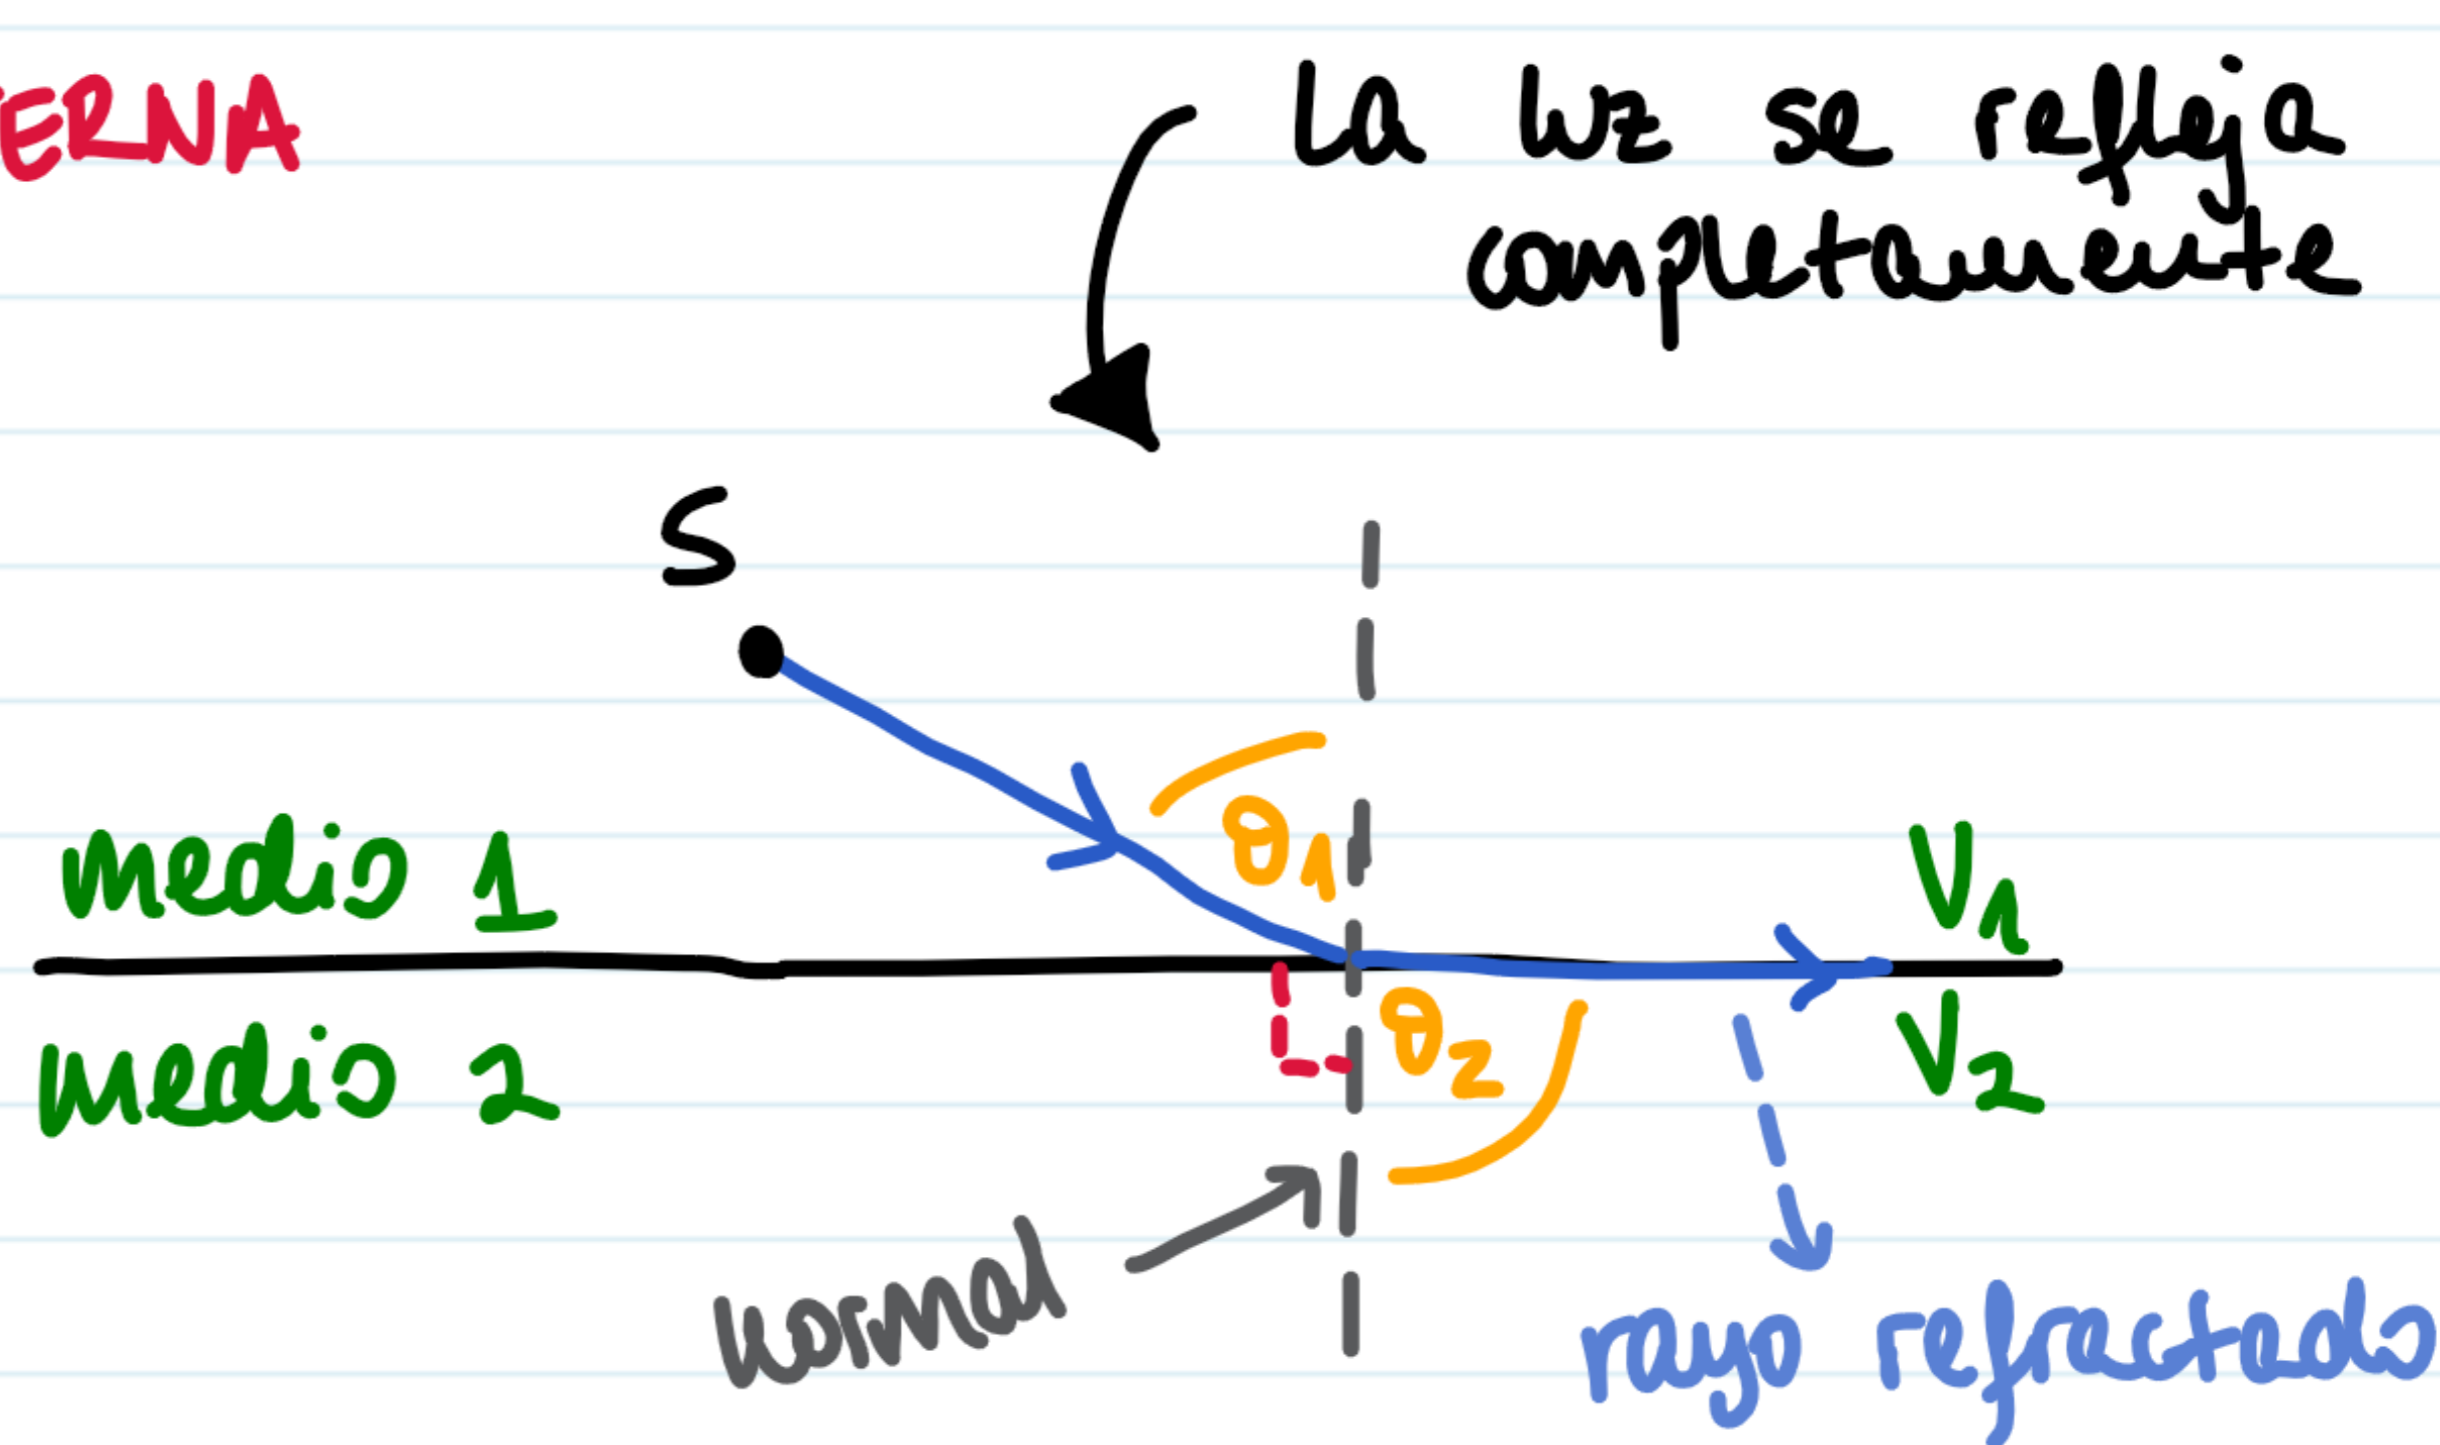 ERNA
La luz se refleja
completamente
S
θ1
Medio 1
V1
Medio 2
θ2
V2
Normal
rayo refractado